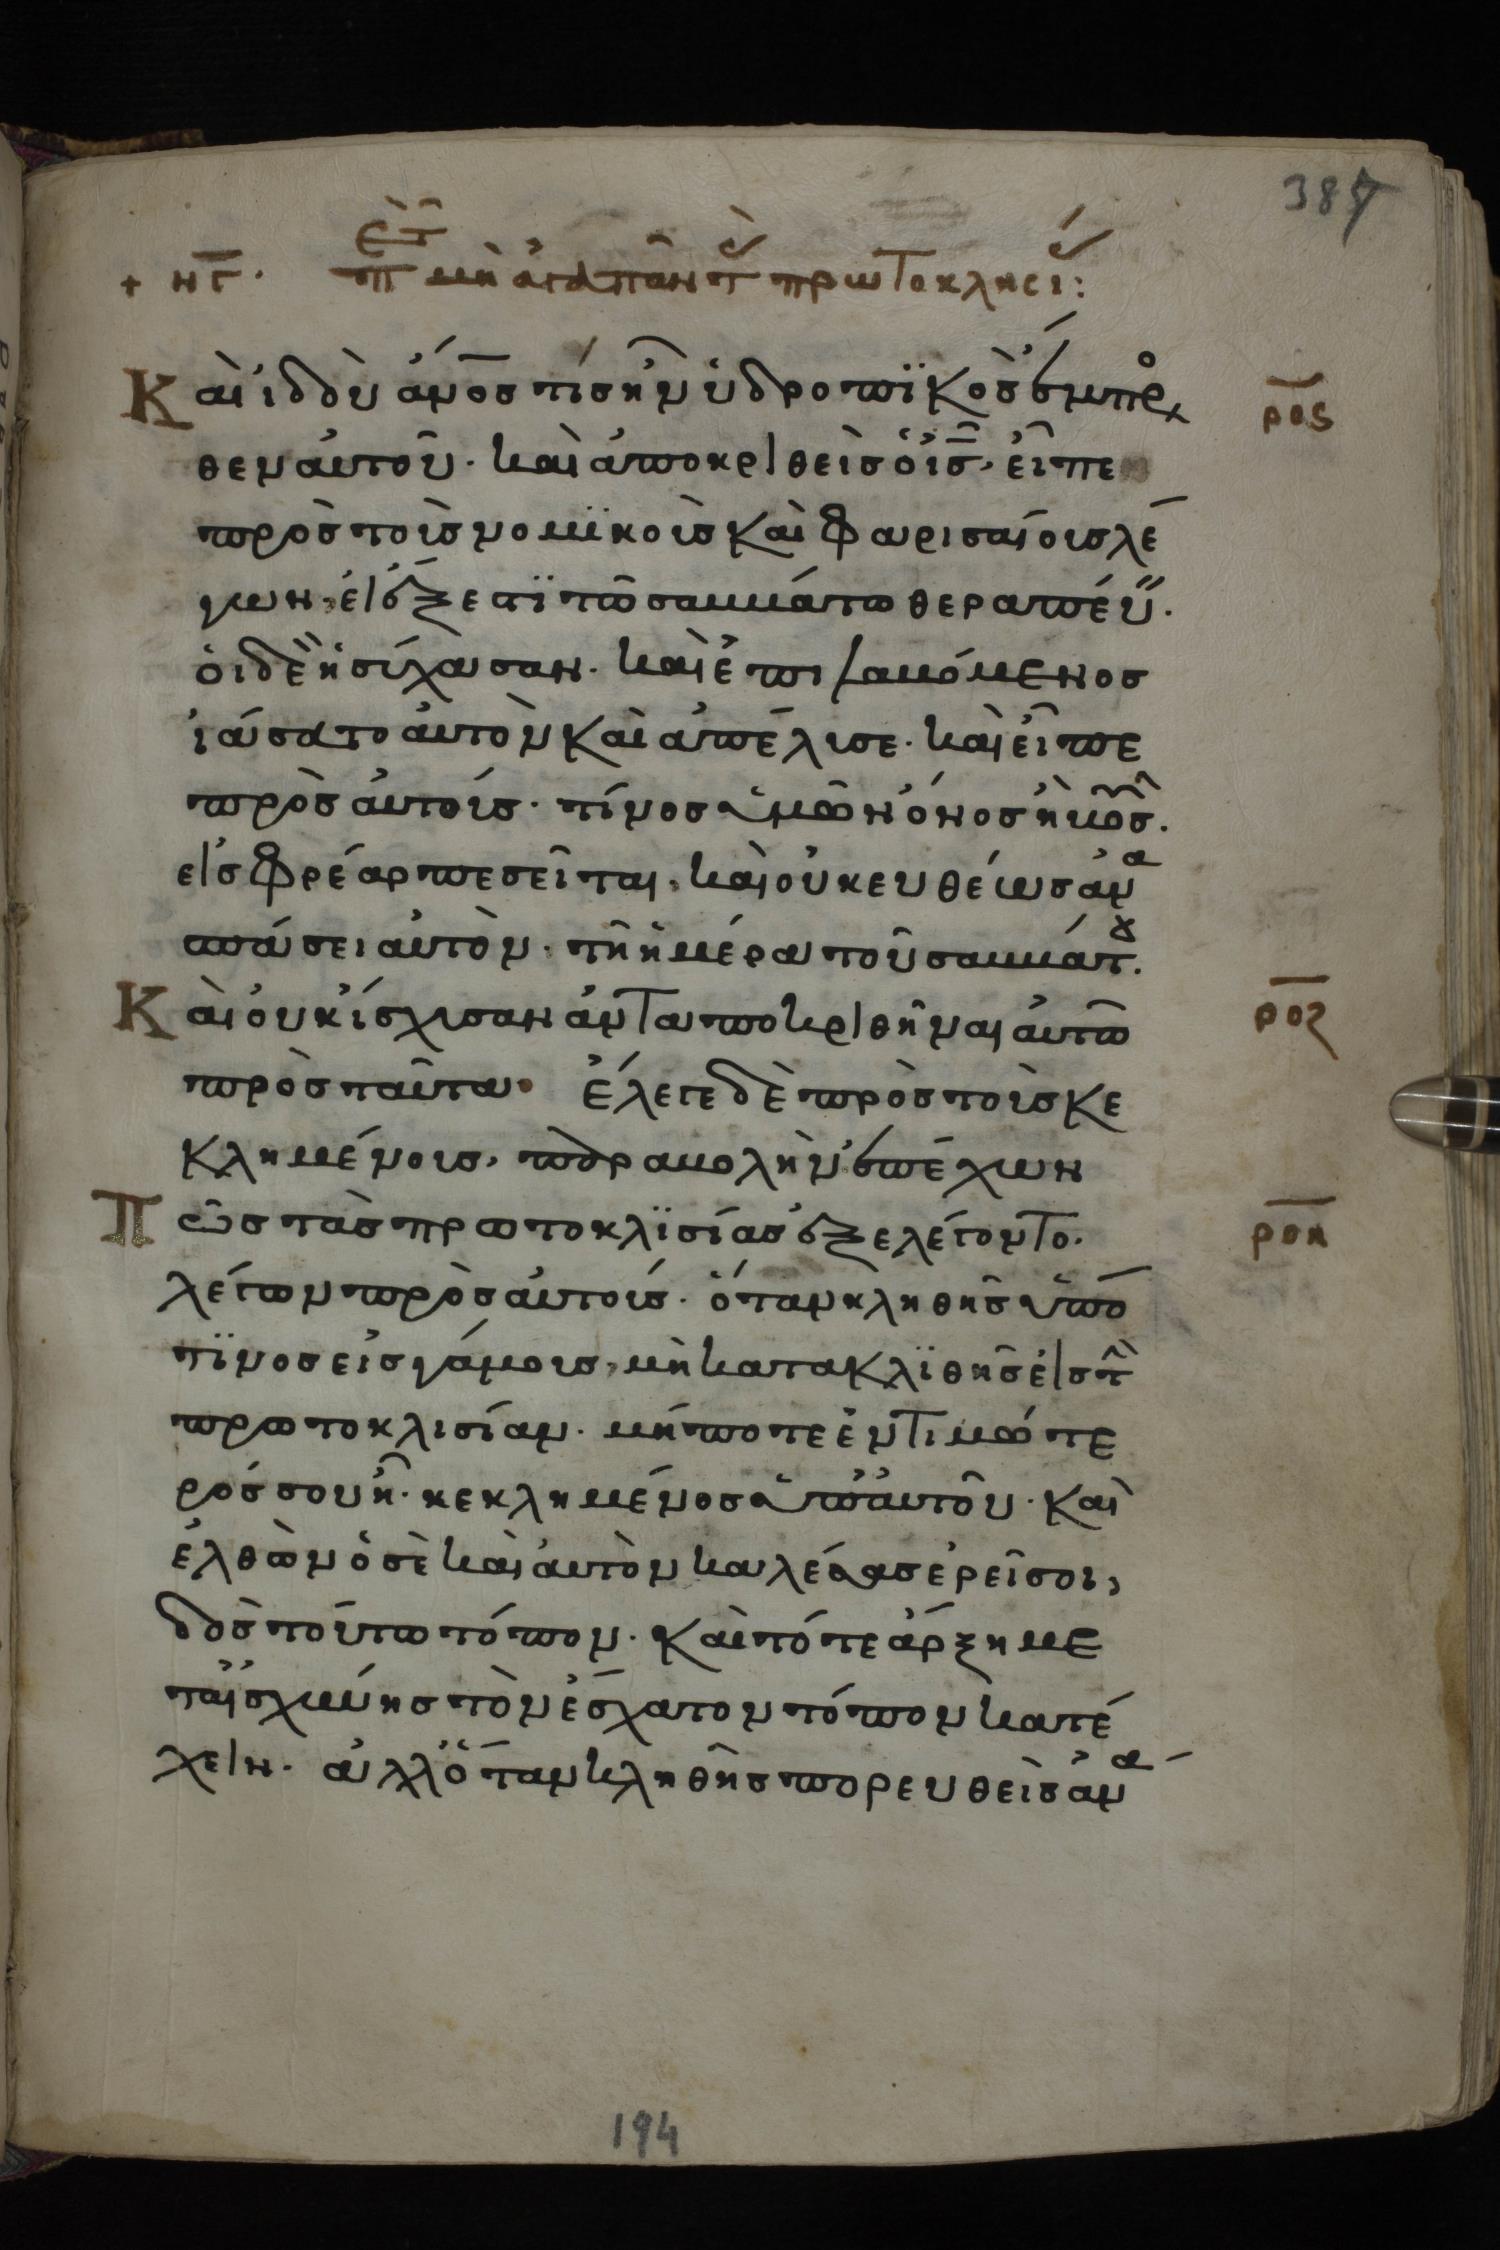 387
+ νγ. περὶ τοῦ μὴ ἀγαπᾶν τὰς πρωτοκλησί:
Καὶ ἰδοὺ ἄν̅ο̅ς τις ἦν ὑδροπϊκὸς ἔμπρο ρος
σθεν αὐτοῦ· καὶ ἀποκριθεὶς ὁ ἰ̅ς̅, εἶπε
πρὸς τοὺς νομϊκοὺς καὶ φαρισαίους λέ
γων, εἰ ἔξεστϊ τῶ σαββάτω θεραπεύ̈.
οἱ δὲ ἡσύχασαν. καὶ ἐπιλαβόμενος
ἰάσατο αὐτὸν καὶ ἀπέλυσε. καὶ εἶπε
πρὸς αὐτούς· τίνος ὑμῶν ὄνος ἢ βοῦς.
εἰς φρέαρ πεσεῖται, καὶ οὐκ ευθέως ἀνα
σπάσει αὐτὸν· τῆ ἡμέρα τοῦ σαββάτου.
Καὶ οὐκ ἴσχυσαν ἀνταποκριθῆναι αὐτῶ ροζ
πρὸς ταῦτα· Ἔλεγε δὲ πρὸς τοὺς κε
κλημένους, παραβολὴν ἐπέχων
Πῶς τὰς πρωτοκλϊσίας ἐξελέγοντο. ροη
λέγων πρὸς αὐτούς. ὅταν κληθῆς ὑπό
τϊνος εἰς γάμους, μὴ κατακλϊθῆς εἰς τὴν
πρωτοκλισίαν. μήποτε ἐντιμώτε
ρός σου ἦ. κεκλημένος ὑπ' αὐτοῦ. καὶ
ἐλθὼν ὁ σὲ καὶ αὐτὸν καλέσας ἐρεῖ σοι,
δὸς τούτω τόπον. καὶ τότε ἄρξη με
τ' αἰσχύνης τὸν ἔσχατον τόπον κατέ
χειν. ἀλλ' ὅταν κληθῆς πορευθεὶς ἀνά
194